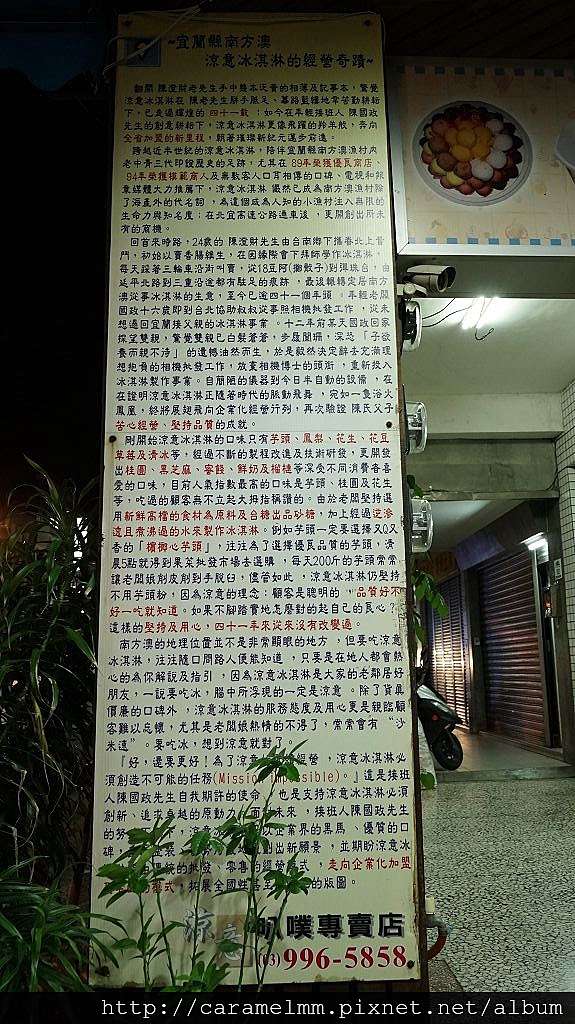 ~宜蘭縣南方澳
涼意冰淇淋的經營奇蹟~
翻開 陳澄財老先生手中幾本厚重的相薄及記事本，驚覺
涼意冰淇淋在 陳老先生胼手胝足、蓽路藍縷地辛苦勤耕耘
下，已走過輝煌的 四十一載 ；如今在年輕接班人 陳國政
先生的創意耕耘下，涼意冰淇淋更像飛躍的羚羊般，奔向
全省加盟的新里程，朝著璀璨新紀元邁步前進。
跨越近半世紀的涼意冰淇淋，陪伴宜蘭縣南方澳漁村內
老中青三代印證歷史的足跡，尤其在 89年榮獲優良商店、
94年榮獲模範商人及無數客人口耳相傳的口碑、電視和報
章媒體大力推薦下，涼意冰淇淋 儼然已成為南方澳漁村除
了海產外的代名詞 ，為這個成為人知的小漁村注入無限的
生命力與知名度；在北宜高速公路通車後 ，更開創出所未
有的商機。
回首來時路，24歲的 陳澄財先生由台南鄉下攜眷北上營
鬥，初始以賣香腸維生，在因緣際會下拜師學作冰淇淋，
每天踩著三輪車沿街叫賣，從18豆阿(擲骰子)到彈珠台，由
延平北路到三重沿途都有駐足的痕跡 ，最後輾轉定居南方
澳從事冰淇淋的生意，至今已逾四十一個年頭 。年輕老闆
國政十六歲即到台北協助叔叔從事照相機批發工作 ，從未
想過回宜蘭接父親的冰淇淋事業 。十二年前某天國政回家
探望雙親，驚覺雙親已白髮蒼蒼，步履闌珊，深恐「子欲
養而親不待」的遺憾油然而生，於是毅然決定辭去充滿理
想抱負的相機批發工作，放棄相機博士的頭銜 ，重新投入
冰淇淋製作事業。自簡陋的儀器到今日半自動的設備 ，在
在證明涼意冰淇淋正隨著時代的脈動飛舞 ，宛如一隻浴火
鳳凰，終將展翅飛向企業化經營行列，再次驗證 陳氏父子
苦心經營、堅持品質的成就。
剛開始涼意冰淇淋的口味只有芋頭、鳳梨、花生、花豆
草莓及清冰等，經過不斷的製程改進及技術研發，更開發
出桂圓、黑芝麻、蜜餞、鮮奶及榴槤等深受不同消費者喜
愛的口味，目前人氣指數最高的口味是芋頭、桂圓及花生
等，吃過的顧客無不立起大拇指稱讚的。由於老闆堅持選
用新鮮高檔的食材為原料及台糖出品砂糖，加上經過逆滲
透且煮沸過的水來製作冰淇淋。例如芋頭一定要選擇又Q又
香的「檳榔心芋頭」，往往為了選擇優良品質的芋頭，清
晨5點就得到果菜批發市場去選購 ，每天200斤的芋頭常常
讓老闆娘削皮削到手脫臼，儘管如此 ，涼意冰淇淋仍堅持
不用芋頭粉，因為涼意的理念：顧客是聰明的，品質好不
好一吃就知道。如果不腳踏實地怎麼對的起自己的良心？
這樣的堅持及用心，四十一年來從來沒有改變過。
南方澳的地理位置並不是非常顯眼的地方 ，但要吃涼意
冰淇淋，往往隨口問路人便能知道 ，只要是在地人都會熱
心的為你解說及指引 ，因為涼意冰淇淋是大家的老鄰居好
朋友，一說要吃冰，腦中所浮現的一定是涼意 。除了貨真
價廉的口碑外 ，涼意冰淇淋的服務態度及用心更是親臨顧
客難以忘懷，尤其是老闆娘熱情的不得了，常常會有 “沙
米道”。要吃冰，想到涼意就對了。
『好，還要更好！為了涼意 經營，涼意冰淇淋必
須創造不可能的任務(Mission impossible)。』這是接班
人陳國政先生自我期許的使命，也是支持涼意冰淇淋必須
創新、追求卓越的原動力 面對未來 ，接班人陳國政先生
的努 下，涼意冰 以企業界的黑馬 、優質的口
碑， 創出新願景 ，並期盼涼意冰
傳統的批發、零售的經營 式，走向企業化加盟
式，拓展全國性甚至 的版圖。
涼意 叭噗專賣店
(03)996-5858
http://caramelmm.pixnet.net/album